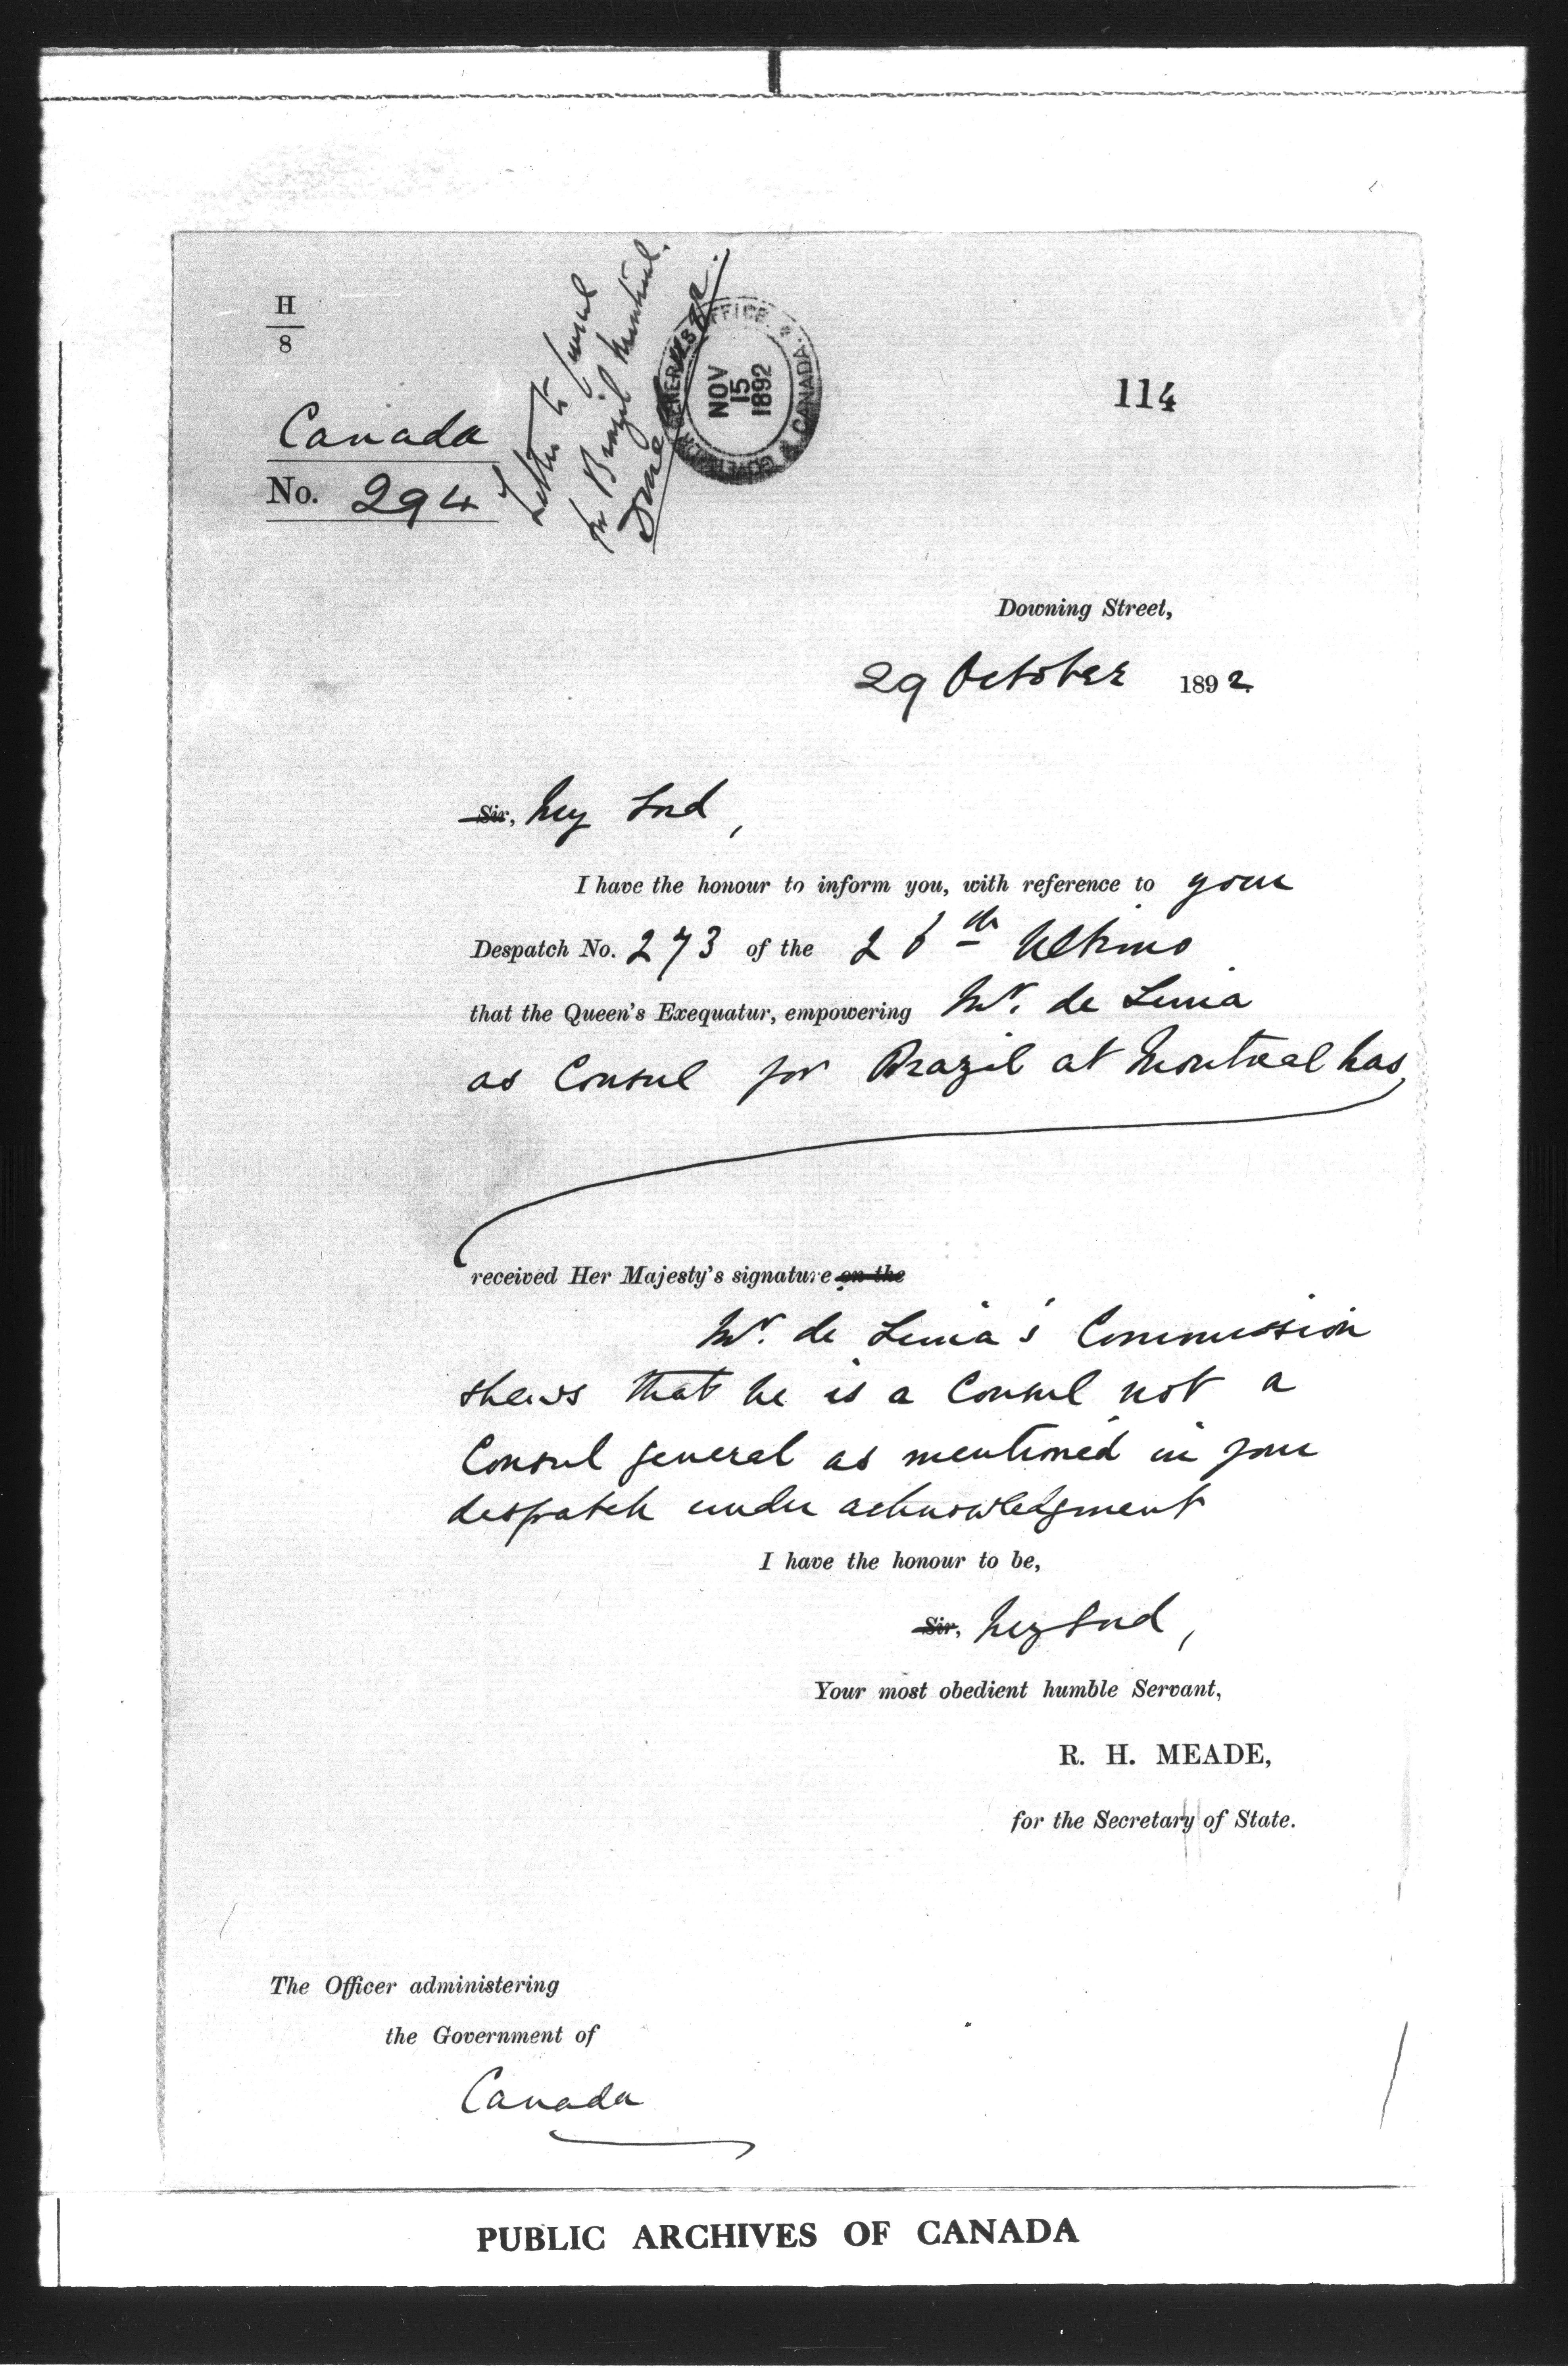 H
8
Canada
No. 294
Letter to Consul
for Brazil Montreal.
Done
GOVERNOR GENERAL'S OFFICE
CANADA
NOV
15
1892
114
Downing Street,
29 October 1892
Sir, My Lord,
I have the honour to inform you, with reference to your
Despatch No. 273 of the 26th Ultimo
that the Queen's Exequatur, empowering Mr. de Lima
as Consul for Brazil at Montreal has
received Her Majesty's signature on the
Mr. de Lima's Commission
shews that he is a Consul not a
Consul General as mentioned in your
despatch under acknowledgment
I have the honour to be,
Sir, My Lord,
Your most obedient humble Servant,
R. H. MEADE,
for the Secretary of State.
The Officer administering
the Government of
Canada
PUBLIC ARCHIVES OF CANADA